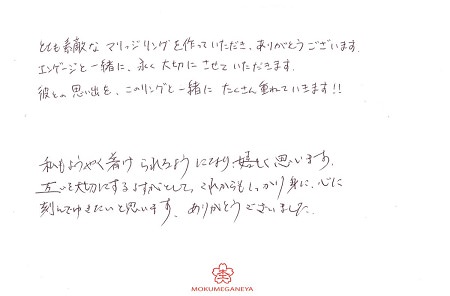 とても素敵な マリッジリングを作っていただき、ありがとうございます。
エンゲージと一緒に、永く大切にさせていただきます。
彼との思い出を、このリングと一緒に たくさん重ねていきます!!
私もようやく着けられるようになり、嬉しく思います。
互いを大切にするよすがとして、これからもしっかり身に、心に
刻んでゆきたいと思います。ありがとうございました。
MOKUMEGANEYA